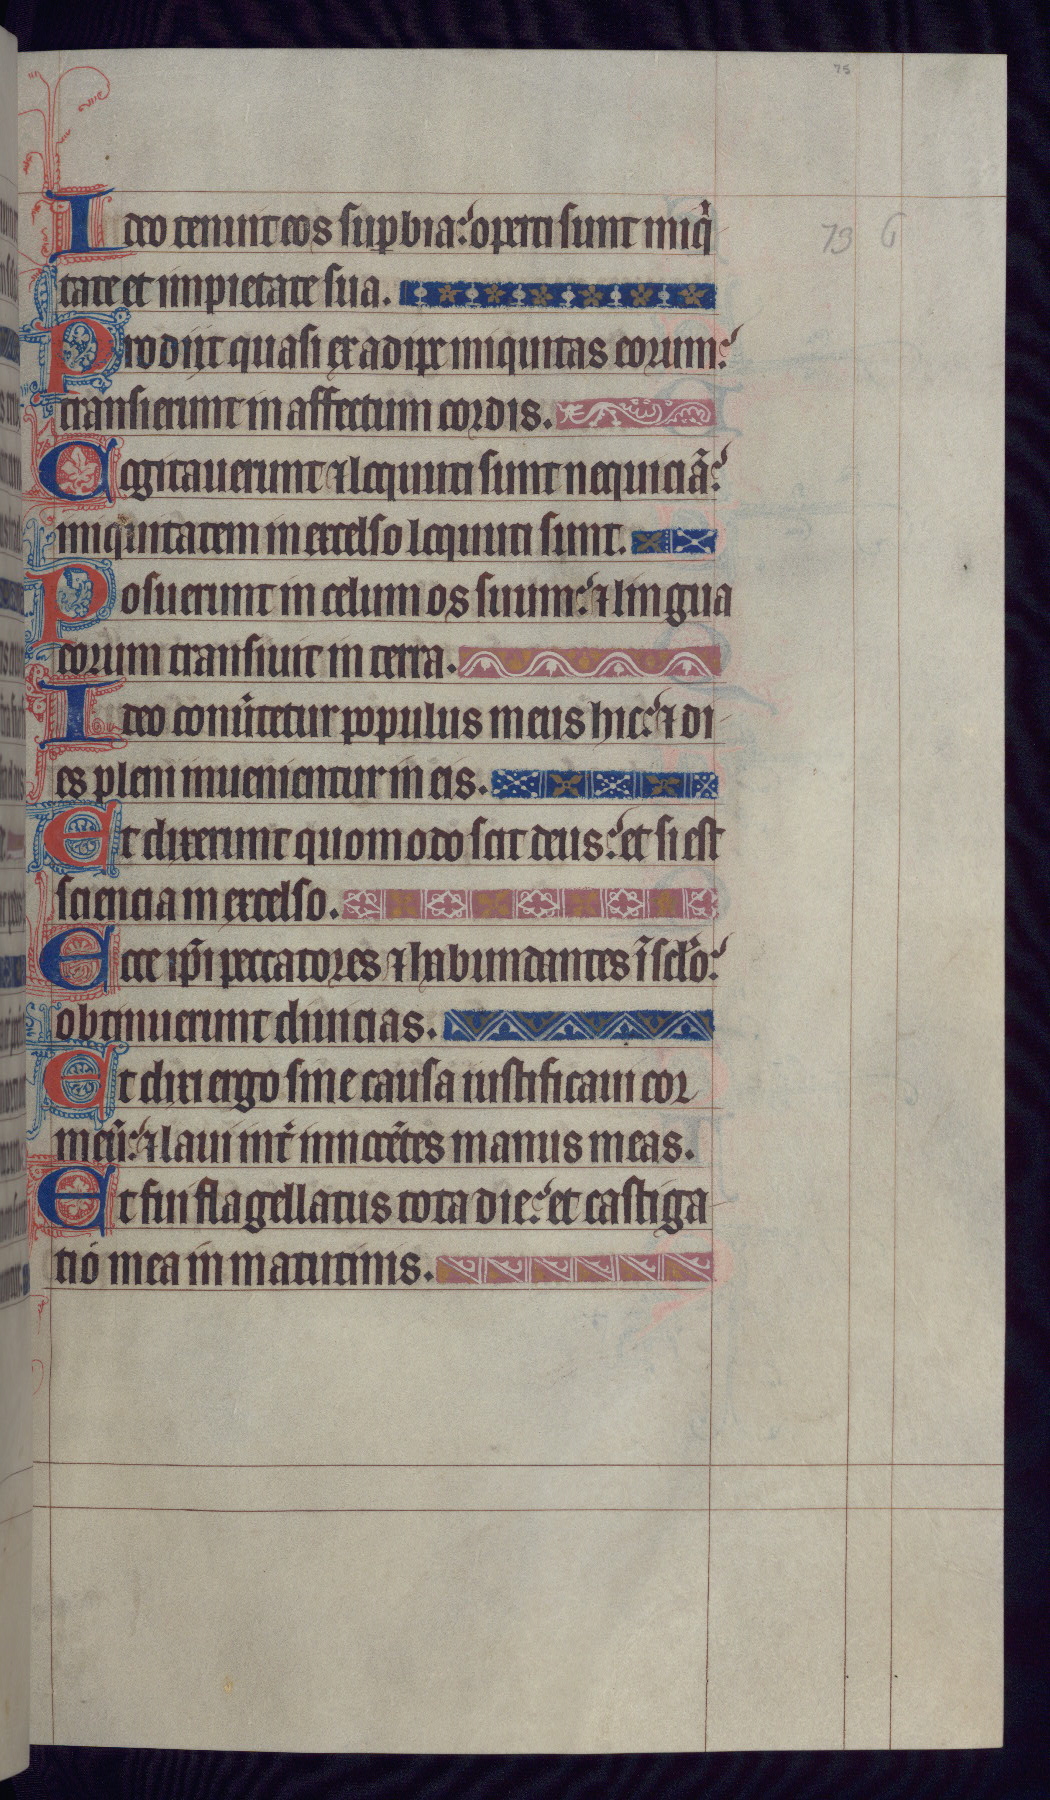 75
73 G
Ideo tenuit eos supbia: operti sunt iniq̇
tate et impietate sua.
Prodiit quasi ex adipe iniquitas eorum:
transierunt in affectum cordis.
Cogitauerunt ⁊ locquuti sunt nequiciā:
iniquitatem in excelso locquuti sunt.
Posuerunt in celum os suum: ⁊ lingua
eorum transiuit in terra.
Ideo conūtetur populus meus hic: ⁊ di
es pleni inuenientur in eis.
Et dixerunt quomodo scit deus: et si est
sciencia in excelso.
Ecce ip̄i peccatores ⁊ habundantes ī sclō:
obtinuerunt diuicias.
Et dixi ergo sine causa iustificaui cor
meū: ⁊ laui int̄ innocētes manus meas.
Et fui flagellatus tota die: et castiga
tio mea in matutinis.